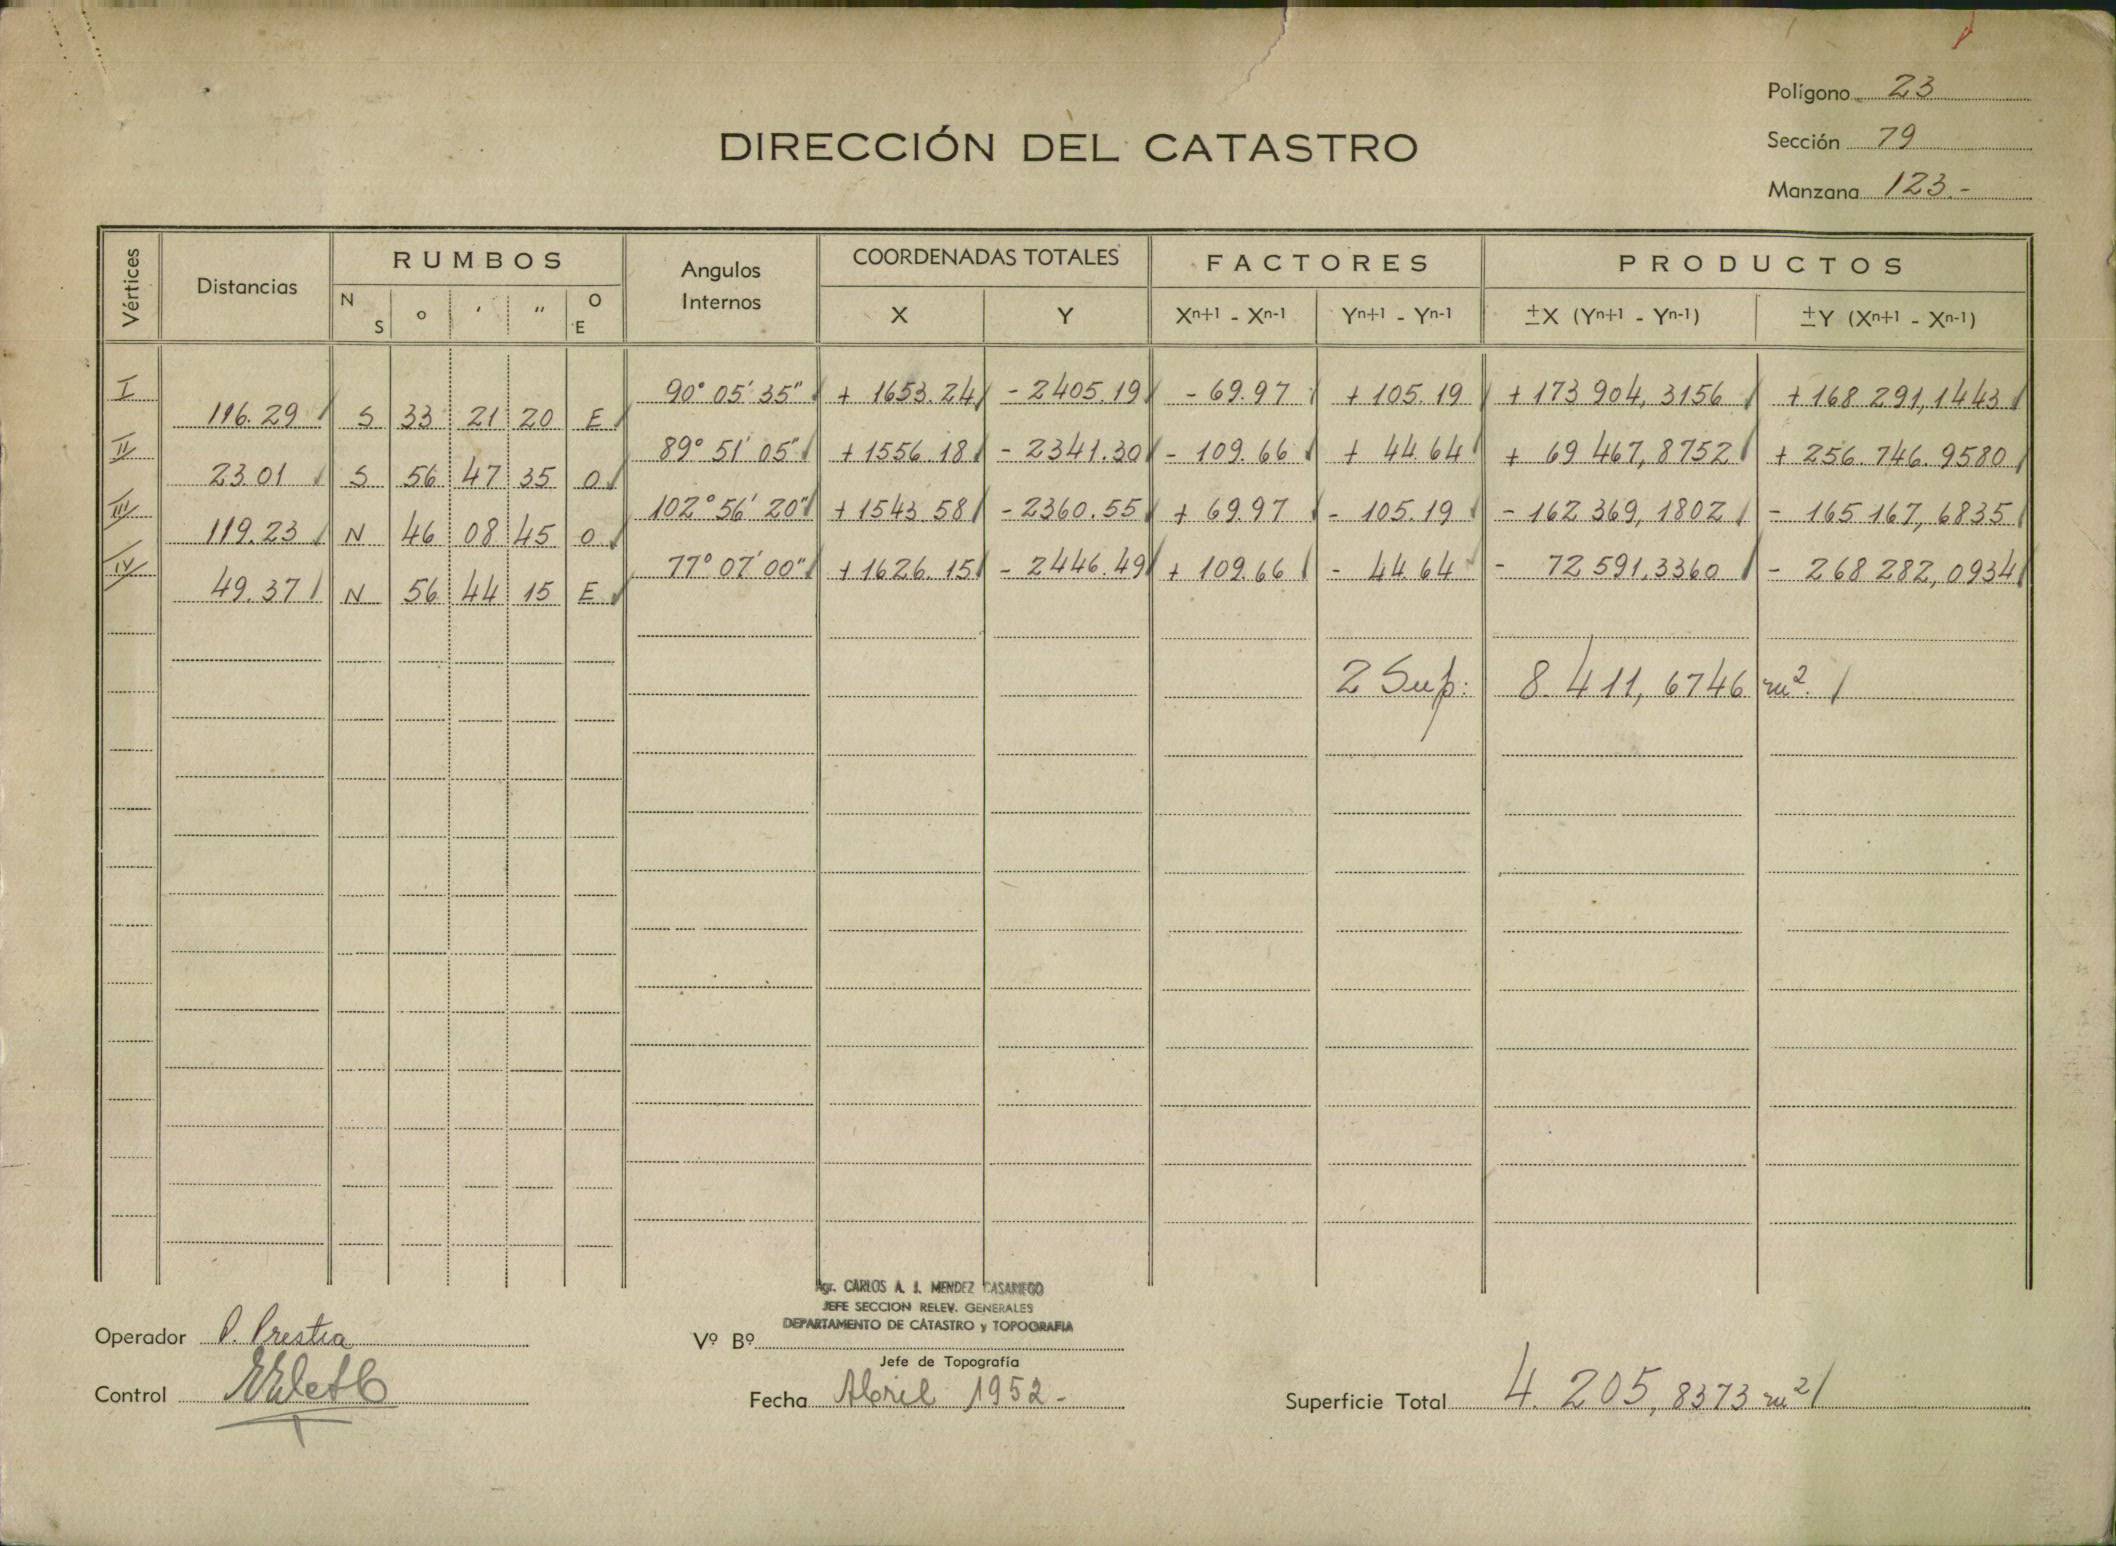 Polígono 23
DIRECCIÓN DEL CATASTRO
Sección 79
Manzana 123.-
Vértices Distancias RUMBOS Angulos Internos COORDENADAS TOTALES FACTORES PRODUCTOS
N S o ' " O E X Y Xn+1 - Xn-1 Yn+1 - Yn-1 ±X (Yn+1 - Yn-1) ±Y (Xn+1 - Xn-1)
I 90° 05' 35" + 1653.24 - 2405.19 - 69.97 + 105.19 + 173 904,3156 + 168 291,1443
116.29 S 33 21 20 E
II 89° 51' 05" + 1556.18 - 2341.30 - 109.66 + 44.64 + 69 467,8752 + 256.746.9580
23.01 S 56 47 35 O
III 102° 56' 20" + 1543.58 - 2360.55 + 69.97 - 105.19 - 162 369,1802 - 165 167,6835
119.23 N 46 08 45 O
IV 77° 07' 00" + 1626.15 - 2446.49 + 109.66 - 44.64 - 72 591,3360 - 268 282,0934
49.37 N 56 44 15 E
2 Sup: 8.411,6746 m².
Agr. CARLOS A. J. MENDEZ CASARIEGO
JEFE SECCION RELEV. GENERALES
DEPARTAMENTO DE CATASTRO y TOPOGRAFIA
Operador P. Prestia
Vº Bº
Jefe de Topografía
Control
Fecha Abril 1952-
Superficie Total 4.205,8373 m²